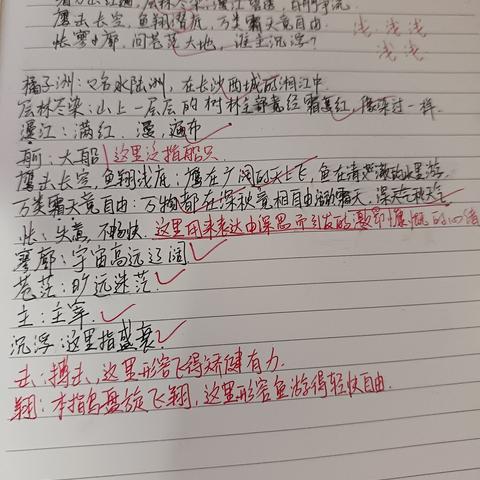 鹰击长空，鱼翔浅底，万类霜天竞自由.
怅寥廓，问苍茫大地，谁主沉浮？
浅 浅 浅
浅 浅
橘子洲：又名水陆洲，在长沙西城的湘江中.
层林尽染：山上一层层的树林经霜打变红，像染过一样.
漫江：满江. 漫，遍布
舸：大船 这里泛指船只.
鹰击长空，鱼翔浅底：鹰在广阔的天上飞，鱼在清澈的水里游.
万类霜天竞自由：万物都在深秋竞相自由活动 霜天，深秋天
怅：失意，不畅快. 这里用来表达由深思而引发的激昂慷慨的心绪
寥廓：宇宙高远辽阔
苍茫：旷远迷茫.
主：主宰.
沉浮：这里指盛衰.
击：搏击，这里形容飞得矫健有力.
翔：本指鸟盘旋飞翔，这里形容鱼游得轻快自由.